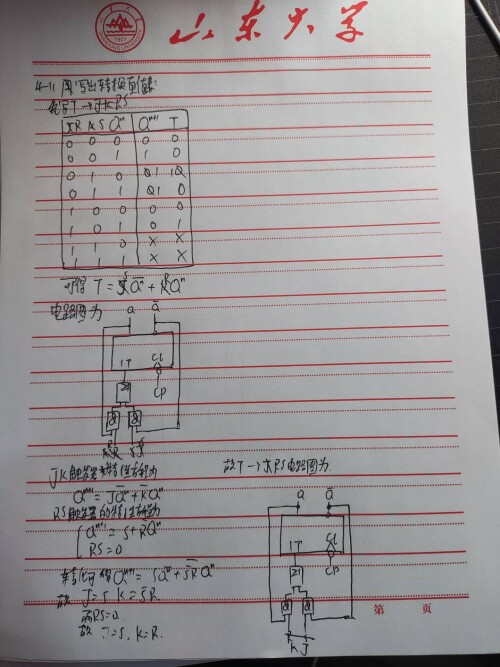 山东大学
4-11 周:写出转换真值表:
先写 T→JK RS
R S Qⁿ Qⁿ⁺¹ T
0 0 0 0 0
0 0 1 1 0
0 1 0 1 1
0 1 1 1 0
1 0 0 0 0
1 0 1 0 1
1 1 0 X X
1 1 1 X X
可得 T = SQ̅ⁿ + RQⁿ
电路图为
Q Q̅
1T C1
≥1
CP
& &
R S
JK触发器特性方程为
Qⁿ⁺¹ = JQ̅ⁿ + K̅Qⁿ
RS触发器的特性方程为
Qⁿ⁺¹ = S + R̅Qⁿ
RS = 0
Qⁿ⁺¹ = SQ̅ⁿ + S̅R̅Qⁿ
故 J = S K = S̅R
而RS=0
故 J = S, K = R.
故T→RS电路图为
Q Q̅
1T C1
≥1
CP
& &
K J
第 页